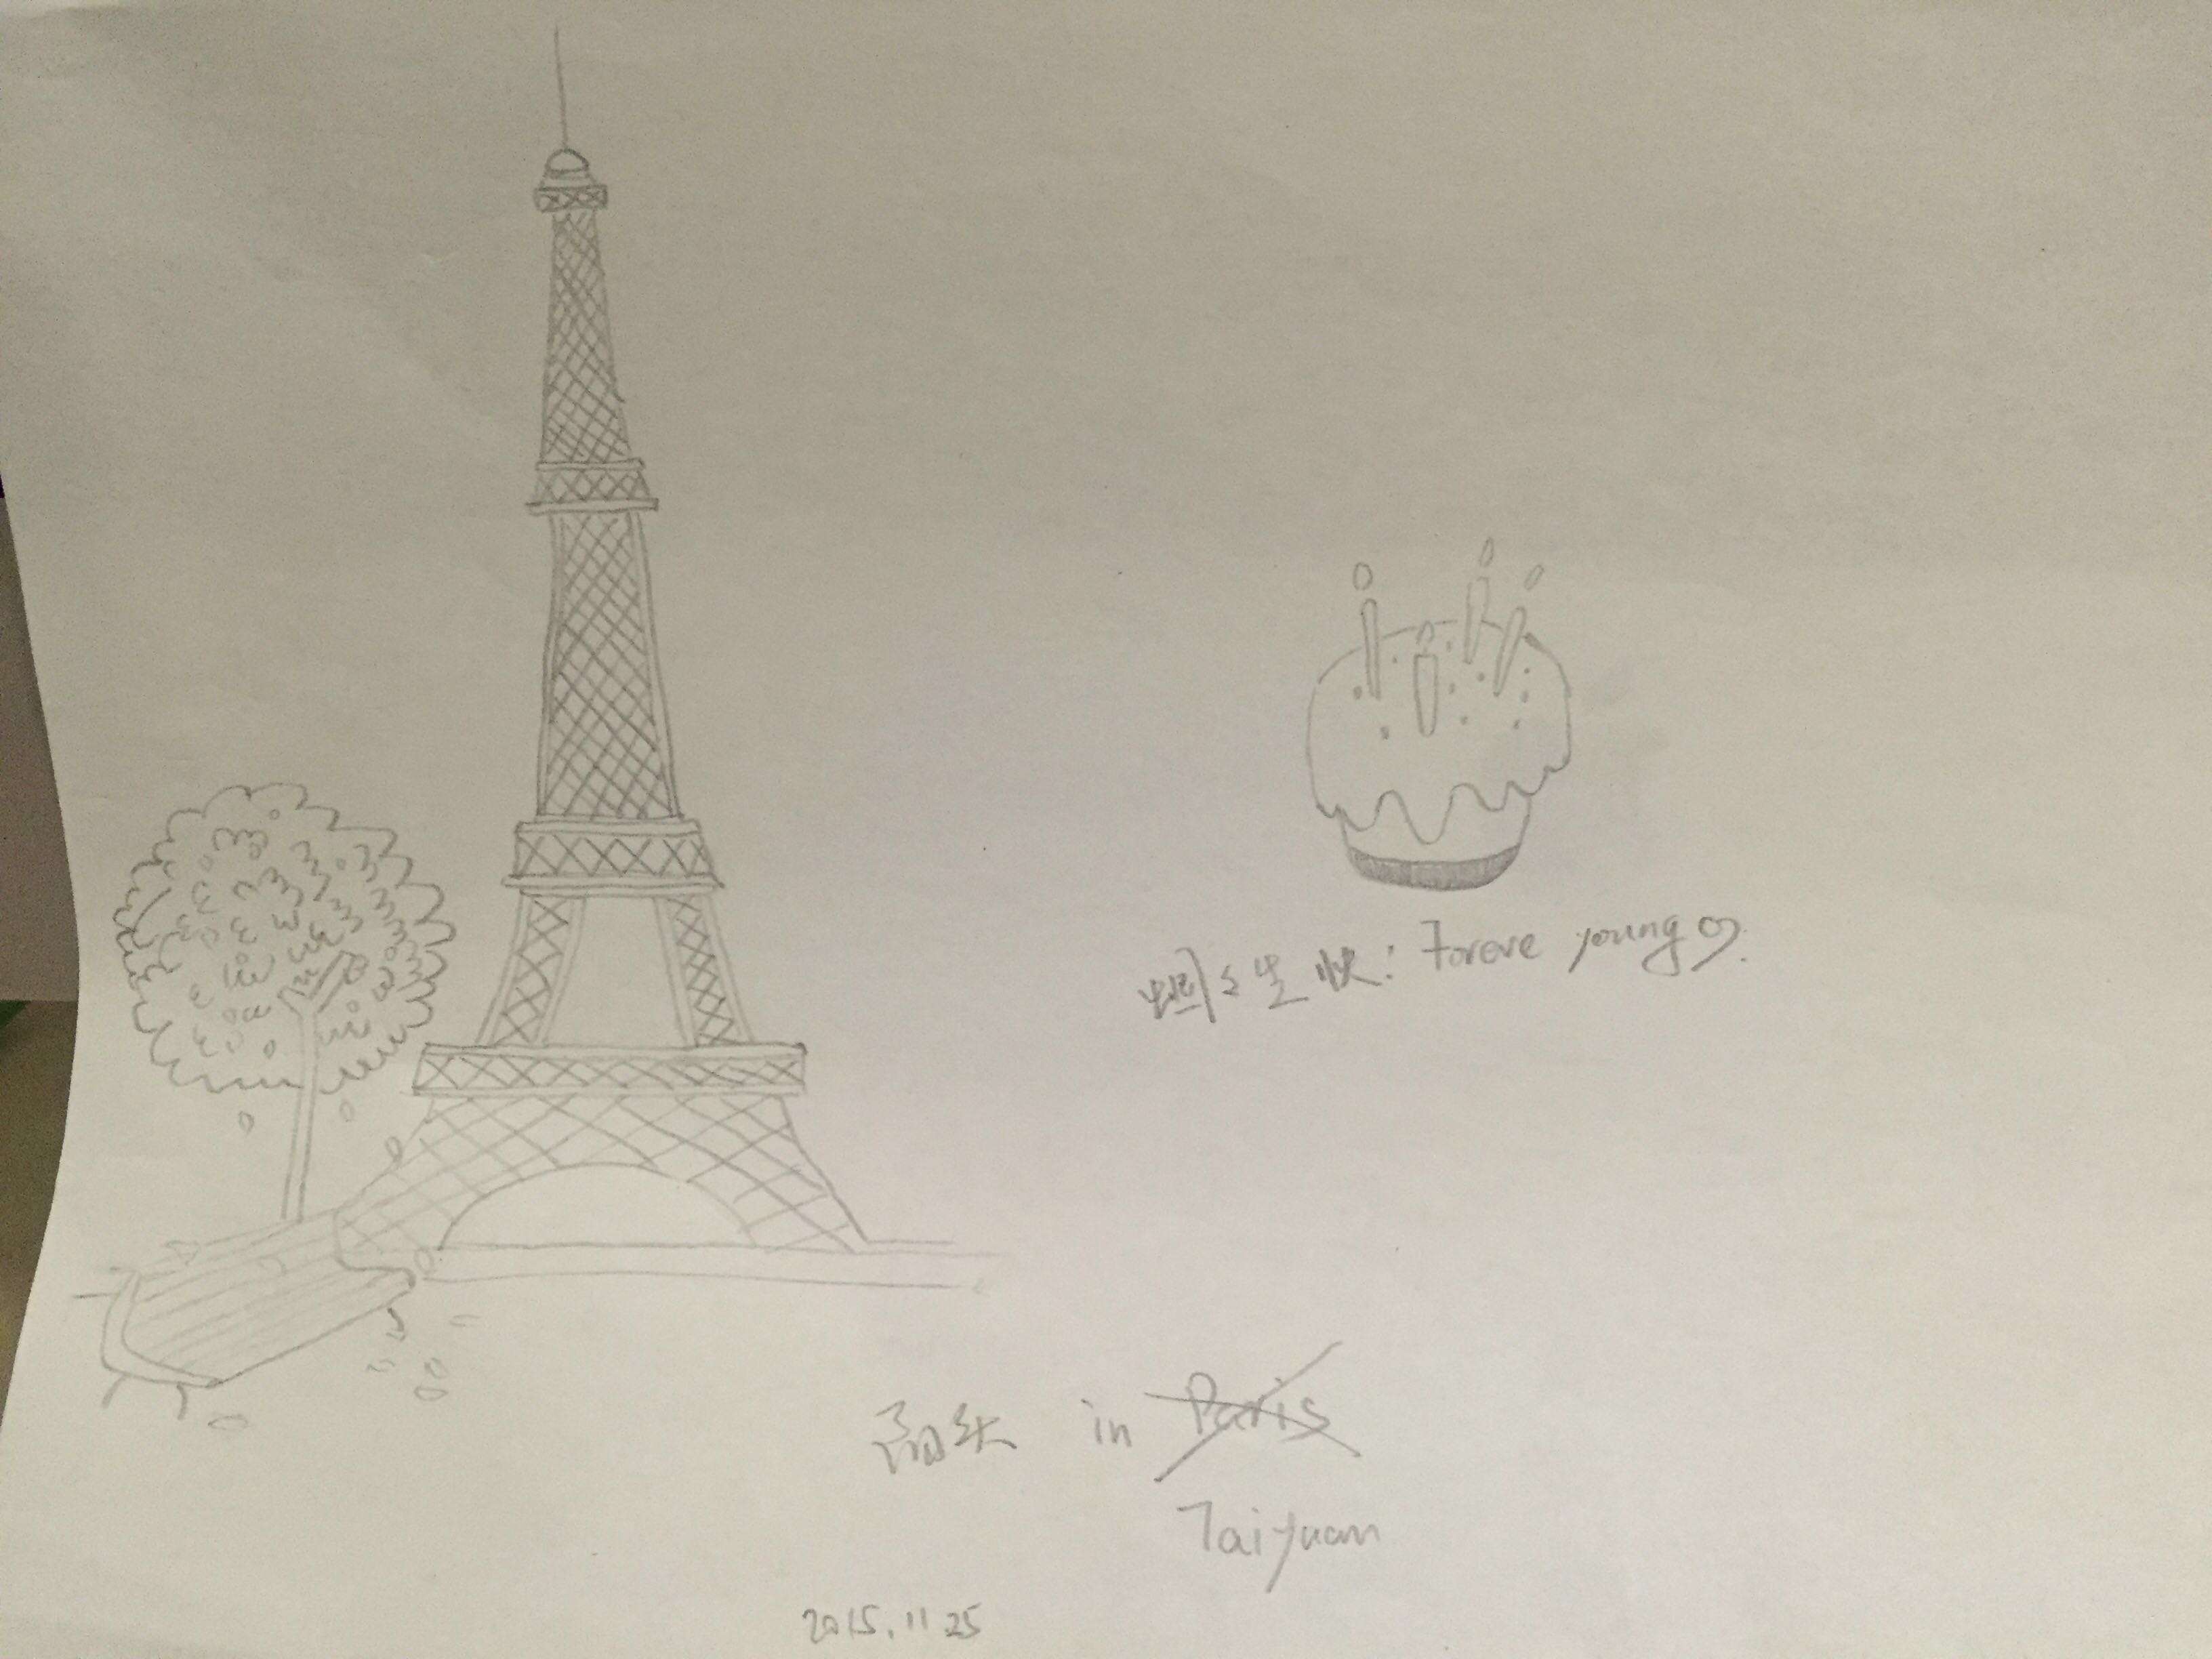 生快: Foreve young
in Paris
Taiyuan
2015.11.25